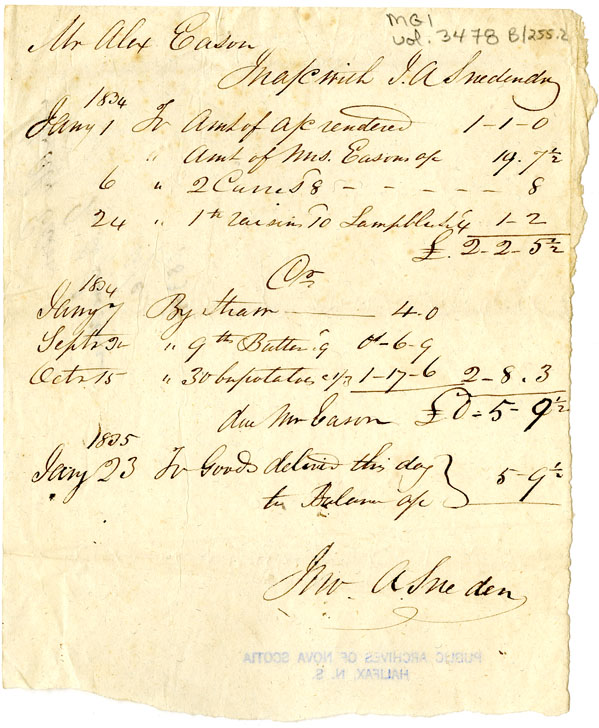 MG1
vol. 3478 B/255.2
Mr Alex Eason
In a/c with J. A Sneden Dr
1834
Jany 1 To Amt of a/c rendered 1-1-0
" Amt of Mrs. Easons a/c 19.7½
6 " 2 8 - - - - - 8
24 " 1 lb raisins 10 Lampblack 4 1-2
£. 2-2-5½
Cr
1834
Jany 7 By Straw 4-0
Septr " 9 lb Butter 9 0-6-9
Octr 15 " 30 bu potatoes 1/3 1-17-6 2-8.3
due Mr Eason £0-5-9½
1835
Jany 23 To Goods delivrd this day
to Balance a/c } 5-9½
Jno A Sneden
PUBLIC ARCHIVES OF NOVA SCOTIA
HALIFAX, N. S.